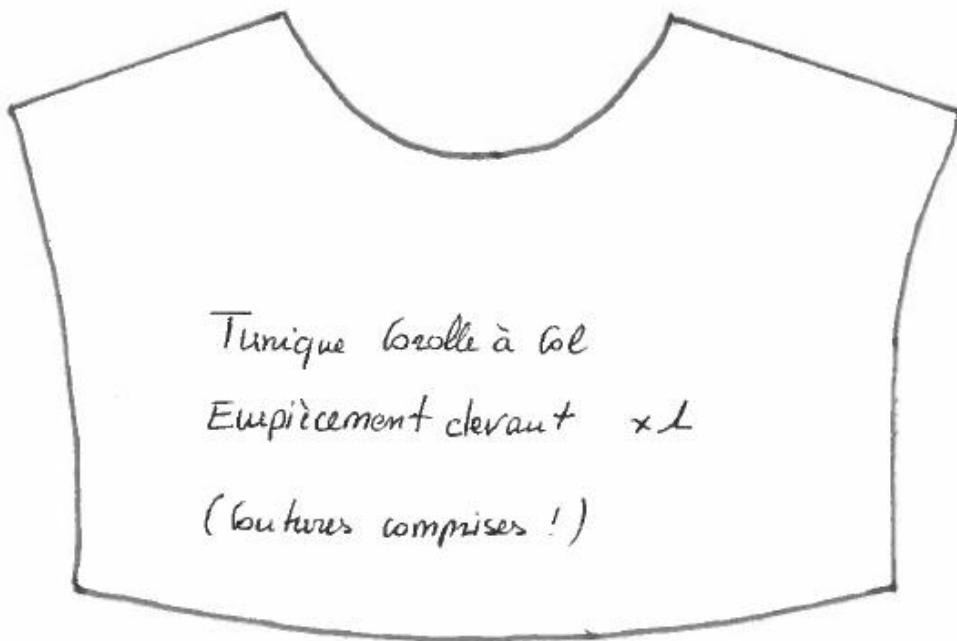 Tunique Corolle à Col
Empiècement devant x1
(Coutures comprises !)